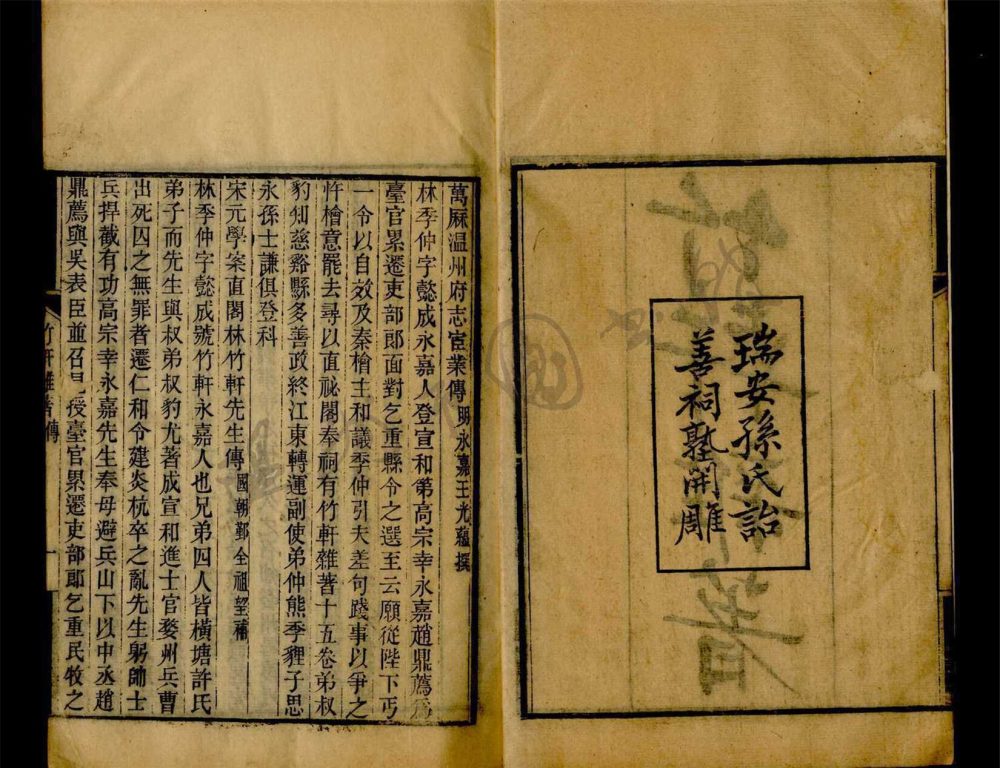 瑞安孫氏詒
善祠塾開雕
萬厤温州府志宦業傳明永嘉王光蘊撰
林季仲字懿成永嘉人登宣和第高宗幸永嘉趙鼎薦爲
臺官累遷吏部郎面對乞重縣令之選至云願從陛下丐
一令以自效及秦檜主和議季仲引夫差句踐事以爭之
忤檜意罷去尋以直祕閣奉祠有竹軒雜著十五卷弟叔
豹知慈谿縣多善政終江東轉運副使弟仲熊季貍子思
永孫士謙俱登科
宋元學案直閣林竹軒先生傳國朝鄞全祖望補
林季仲字懿成號竹軒永嘉人也兄弟四人皆橫塘許氏
弟子而先生與叔弟叔豹尤著成宣和進士官婺州兵曹
出死囚之無罪者遷仁和令建炎杭卒之亂先生躬帥士
兵捍截有功高宗幸永嘉先生奉母避兵山下以中丞趙
鼎薦與吴表臣並召見授臺官累遷吏部郎乞重民牧之
竹軒雜著傳
一